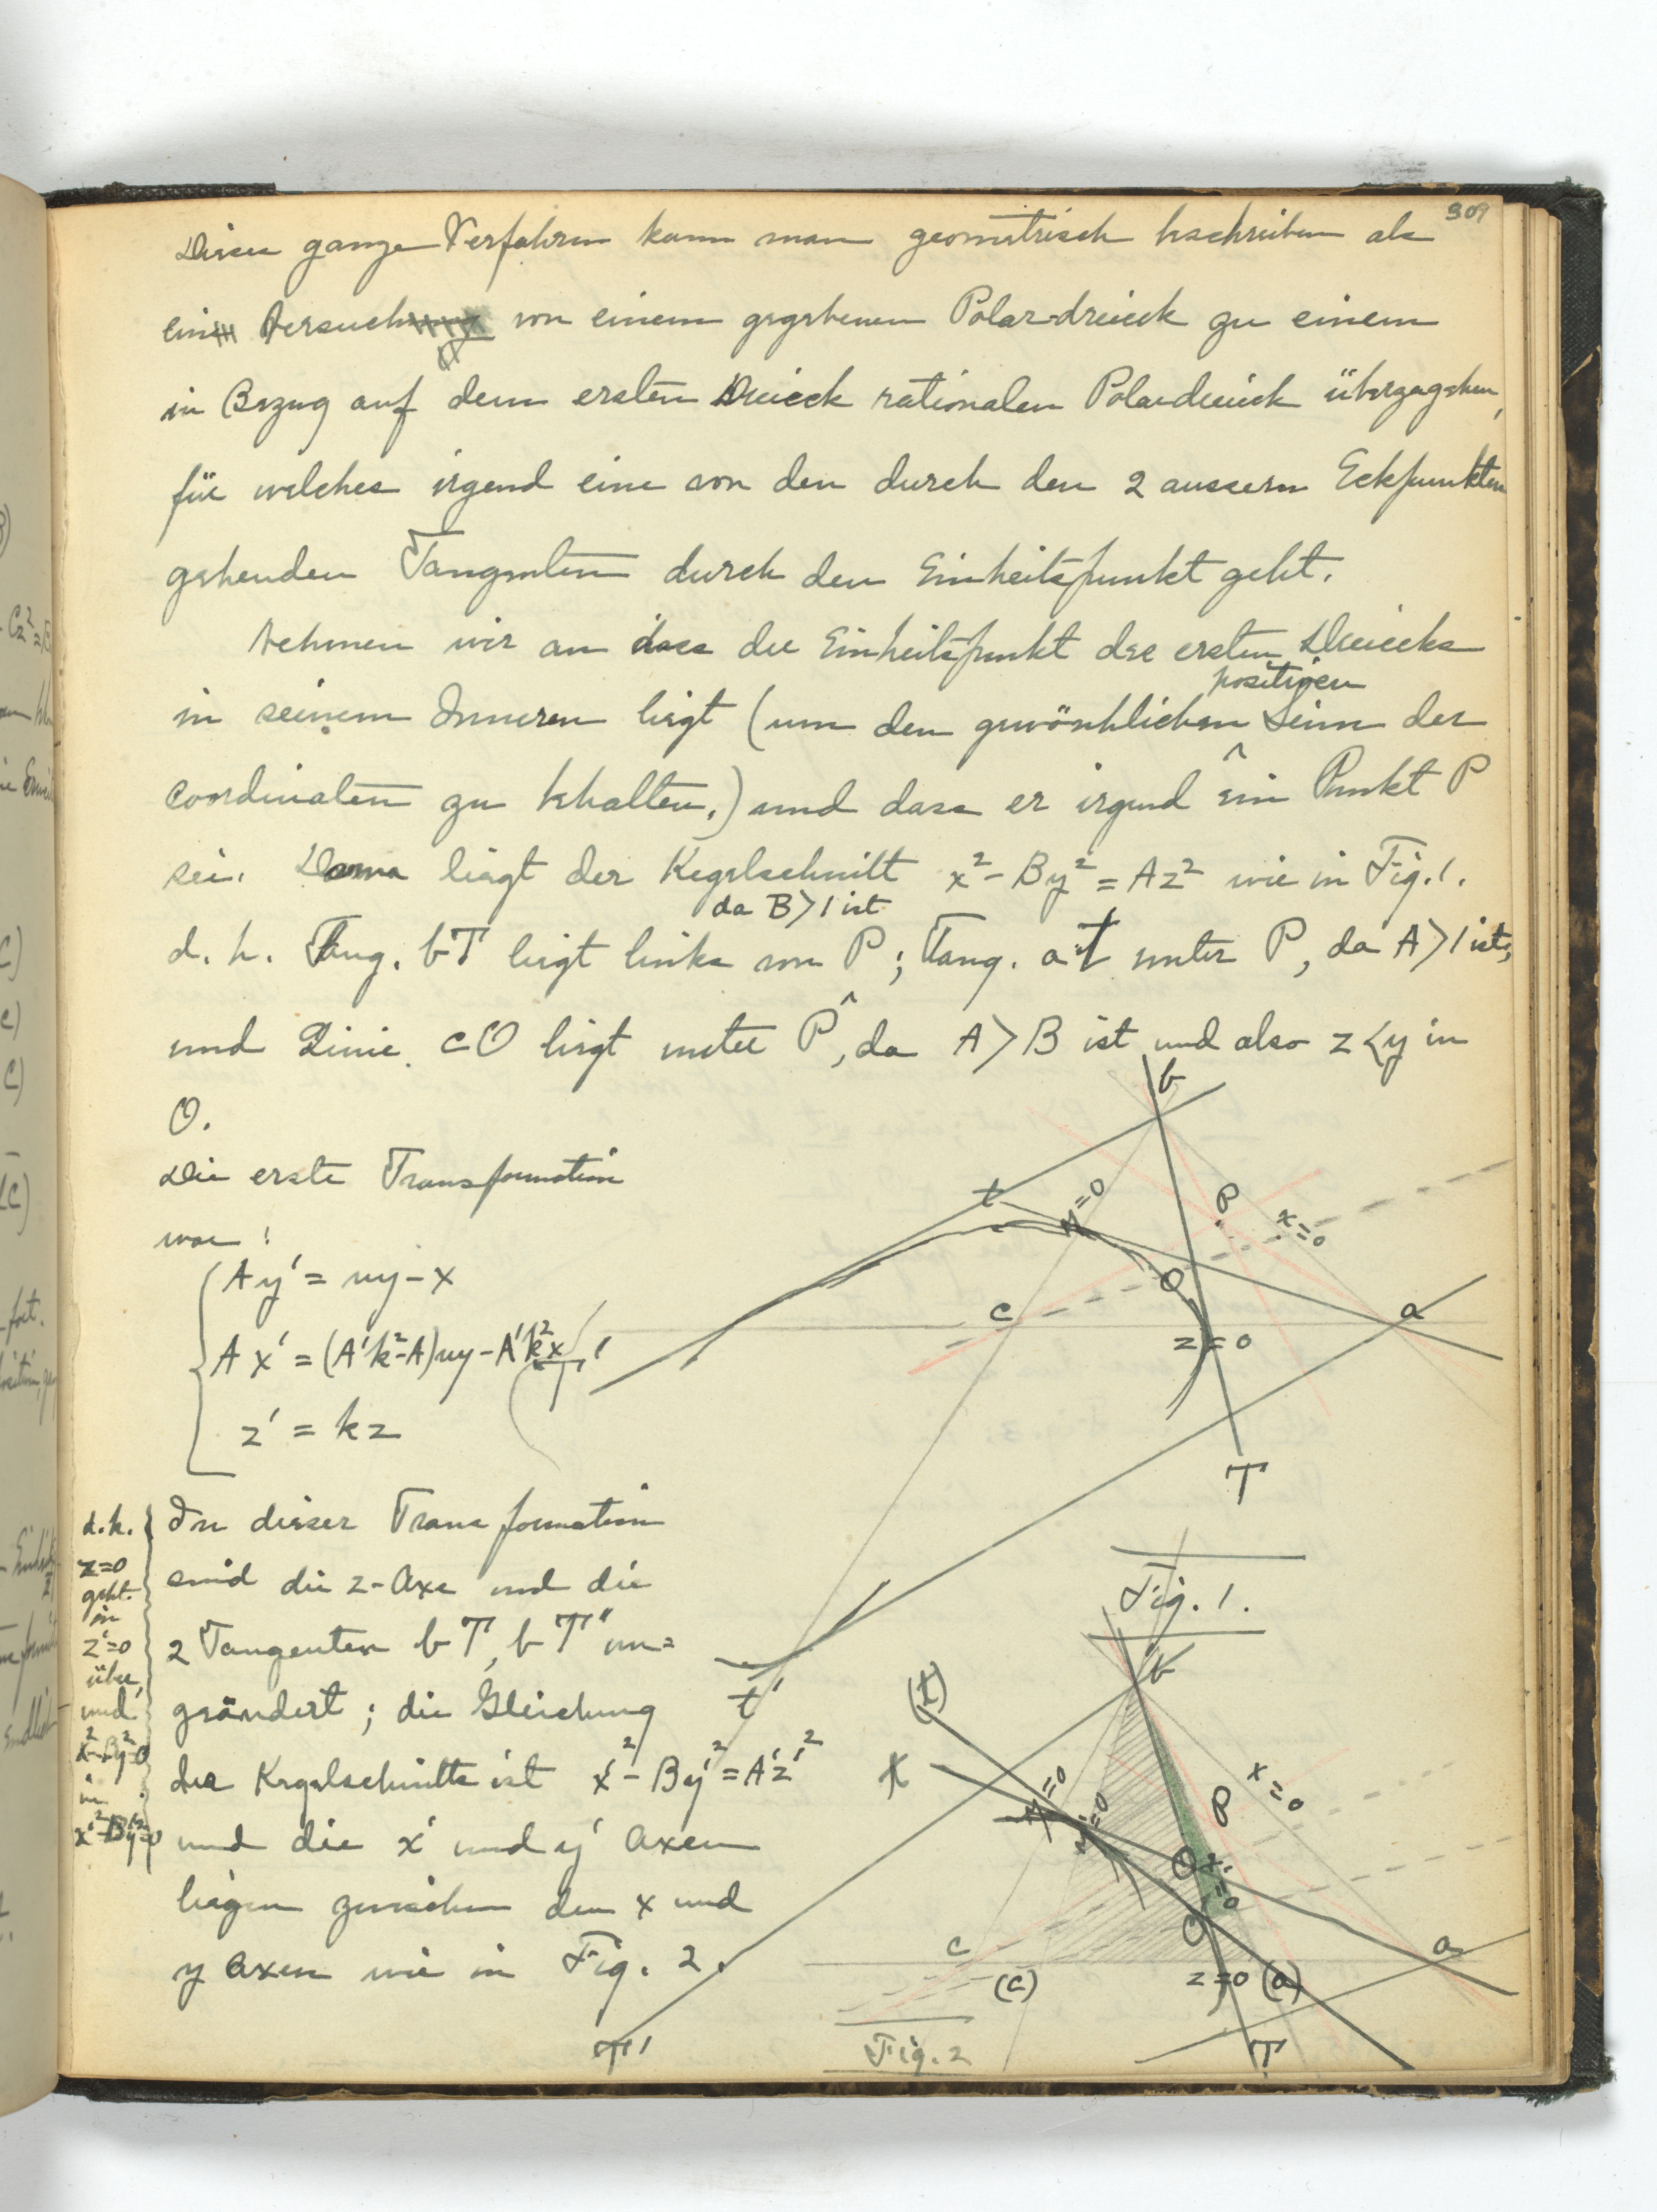 309
Dieses ganze Verfahren kann man geometrisch beschreiben als
ein Versuch von einem gegebenen Polardreieck zu einem
in Bezug auf dem ersten Dreieck rationalen Polardreieck überzugehen,
für welches irgend eine von den durch den 2 aussern Eckpunkten
gehenden Tangenten durch den Einheitspunkt geht.
Nehmen wir an dass der Einheitspunkt des ersten Dreiecks
positiven
in seinem Inneren liegt (um den gewönhlichen Sinn der
Coordinaten zu behalten.) und dass er irgend ein Punkt P
sei. Dann liegt der Kegelschnitt x² - By² = Az² wie in Fig. 1.
da B>1 ist
d. h. Tang. bT liegt links von P; Tang. at unter P, da A>1 ist;
und Linie cO liegt unter P, da A>B ist und also z<y in
O.
Die erste Transformation
war:
Ay' = uy - x
Ax' = (A'k² - A)uy - A'k²x
z' = kz
b
t
y=0
P
x=0
O
c
a
z=0
T
T'
t'
Fig. 1.
d.h.
z=0
geht
in
z'=0
über,
und
x²-By²=0
in
x'²-By'²=0
In dieser Transformation
sind die z-Axe und die
2 Tangenten bT, bT' un=
geändert; die Gleichung
des Kegelschnitts ist x'² - By'² = A'z'²
und die x' und y' Axen
liegen zwischen den x und
y Axen wie in Fig. 2.
b
(t)
t
y=0
y'=0
P
x=0
O
x'=0
O
c
(c)
z=0
(a)
a
T
T'
Fig. 2